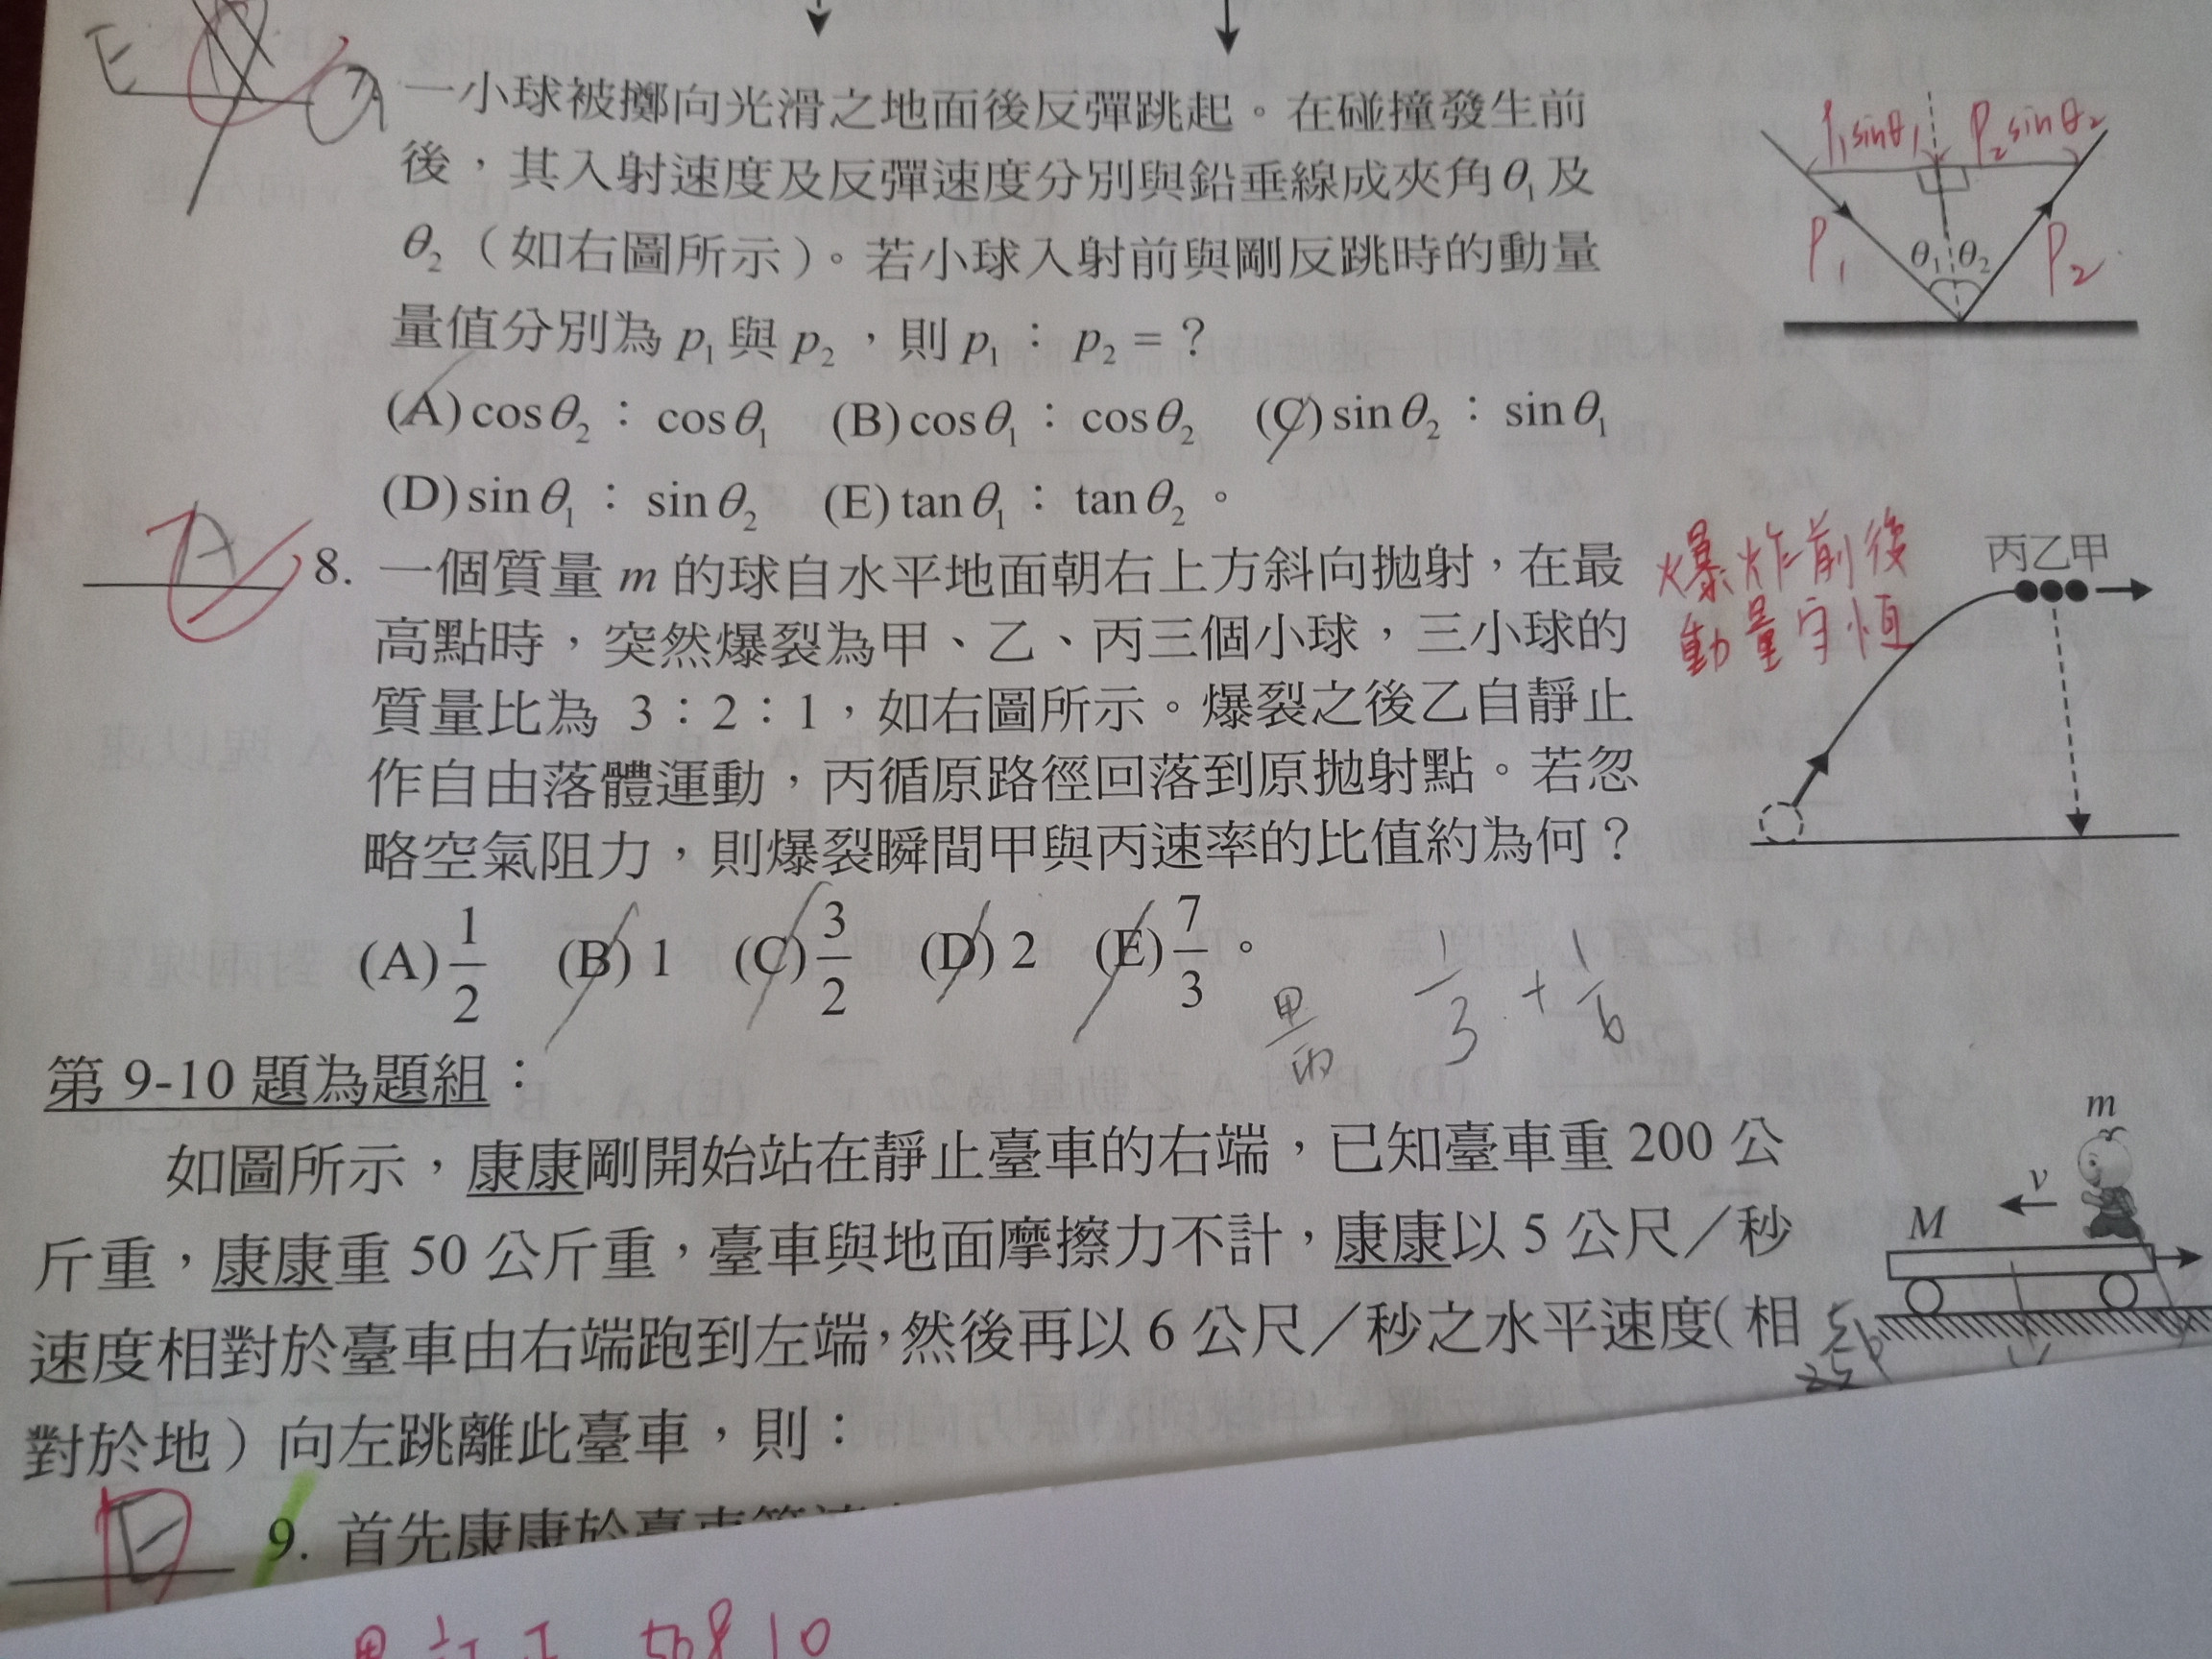 E
7.
一小球被擲向光滑之地面後反彈跳起。在碰撞發生前
後，其入射速度及反彈速度分別與鉛垂線成夾角θ₁及
θ₂（如右圖所示）。若小球入射前與剛反跳時的動量
量值分別為 p₁與 p₂，則 p₁： p₂ = ？
(A)cosθ₂： cosθ₁ (B)cosθ₁： cosθ₂ (C)sinθ₂： sinθ₁
(D)sinθ₁： sinθ₂ (E)tanθ₁： tanθ₂。
P₁sinθ₁ P₂sinθ₂
P₁ θ₁ θ₂ P₂
A
8. 一個質量 m 的球自水平地面朝右上方斜向拋射，在最
高點時，突然爆裂為甲、乙、丙三個小球，三小球的
質量比為 3：2：1，如右圖所示。爆裂之後乙自靜止
作自由落體運動，丙循原路徑回落到原拋射點。若忽
略空氣阻力，則爆裂瞬間甲與丙速率的比值約為何？
(A)1/2 (B)1 (C)3/2 (D)2 (E)7/3。
爆炸前後
動量守恆
丙乙甲
甲/丙 1/3 + 1/6
第 9-10 題為題組：
如圖所示，康康剛開始站在靜止臺車的右端，已知臺車重 200 公
斤重，康康重 50 公斤重，臺車與地面摩擦力不計，康康以 5 公尺／秒
速度相對於臺車由右端跑到左端，然後再以 6 公尺／秒之水平速度（相
對於地）向左跳離此臺車，則：
m
v
M
E
9. 首先康康於臺車